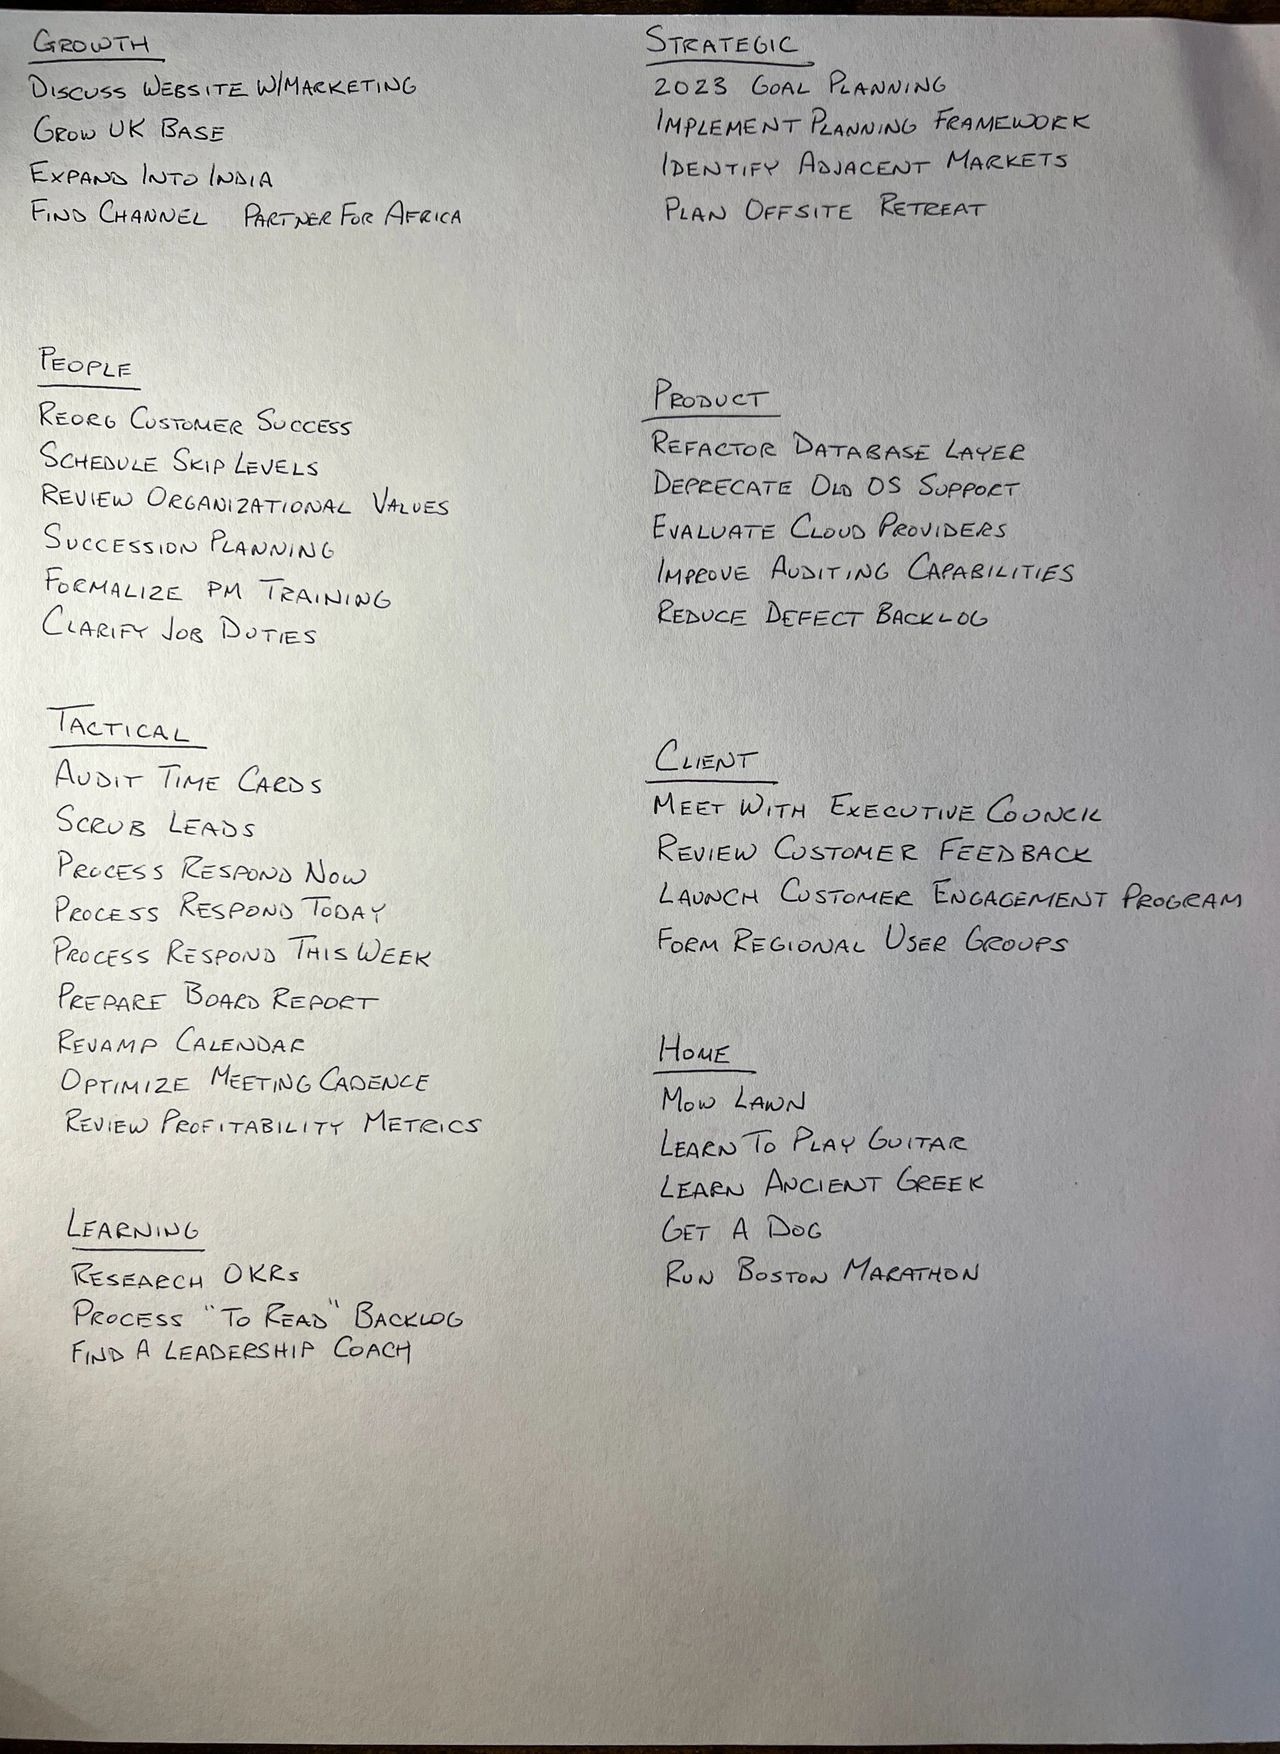 GROWTH
DISCUSS WEBSITE W/MARKETING
GROW UK BASE
EXPAND INTO INDIA
FIND CHANNEL PARTNER FOR AFRICA
PEOPLE
REORG CUSTOMER SUCCESS
SCHEDULE SKIP LEVELS
REVIEW ORGANIZATIONAL VALUES
SUCCESSION PLANNING
FORMALIZE PM TRAINING
CLARIFY JOB DUTIES
TACTICAL
AUDIT TIME CARDS
SCRUB LEADS
PROCESS RESPOND NOW
PROCESS RESPOND TODAY
PROCESS RESPOND THIS WEEK
PREPARE BOARD REPORT
REVAMP CALENDAR
OPTIMIZE MEETING CADENCE
REVIEW PROFITABILITY METRICS
LEARNING
RESEARCH OKRs
PROCESS "TO READ" BACKLOG
FIND A LEADERSHIP COACH
STRATEGIC
2023 GOAL PLANNING
IMPLEMENT PLANNING FRAMEWORK
IDENTIFY ADJACENT MARKETS
PLAN OFFSITE RETREAT
PRODUCT
REFACTOR DATABASE LAYER
DEPRECATE OLD OS SUPPORT
EVALUATE CLOUD PROVIDERS
IMPROVE AUDITING CAPABILITIES
REDUCE DEFECT BACKLOG
CLIENT
MEET WITH EXECUTIVE COUNCIL
REVIEW CUSTOMER FEEDBACK
LAUNCH CUSTOMER ENGAGEMENT PROGRAM
FORM REGIONAL USER GROUPS
HOME
MOW LAWN
LEARN TO PLAY GUITAR
LEARN ANCIENT GREEK
GET A DOG
RUN BOSTON MARATHON